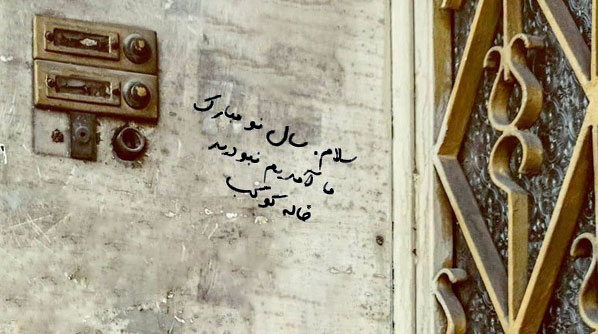 سلام. سال نو مبارک
ما آمدیم نبودید
خاله کوکب